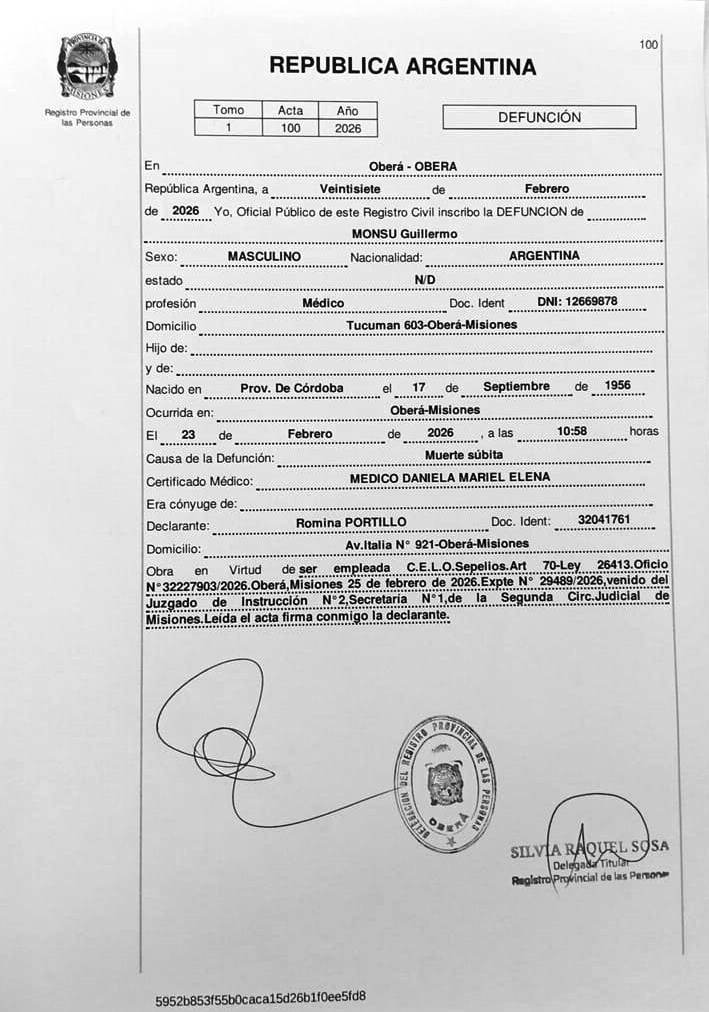 100
PROVINCIA DE
MISIONES
Registro Provincial de
las Personas
REPUBLICA ARGENTINA
Tomo Acta Año
1 100 2026
DEFUNCIÓN
En Oberá - OBERA
República Argentina, a Veintisiete de Febrero
de 2026 Yo, Oficial Público de este Registro Civil inscribo la DEFUNCION de
MONSU Guillermo
Sexo: MASCULINO Nacionalidad: ARGENTINA
estado N/D
profesión Médico Doc. Ident DNI: 12669878
Domicilio Tucuman 603-Oberá-Misiones
Hijo de:
y de:
Nacido en Prov. De Córdoba el 17 de Septiembre de 1956
Ocurrida en: Oberá-Misiones
El 23 de Febrero de 2026 , a las 10:58 horas
Causa de la Defunción: Muerte súbita
Certificado Médico: MEDICO DANIELA MARIEL ELENA
Era cónyuge de:
Declarante: Romina PORTILLO Doc. Ident: 32041761
Domicilio: Av.Italia N° 921-Oberá-Misiones
Obra en Virtud de ser empleada C.E.L.O.Sepelios.Art 70-Ley 26413.Oficio
N°32227903/2026.Oberá,Misiones 25 de febrero de 2026.Expte N° 29489/2026,venido del
Juzgado de Instrucción N°2,Secretaría N°1,de la Segunda Circ.Judicial de
Misiones.Leída el acta firma conmigo la declarante.
DELEGACION DEL REGISTRO PROVINCIAL DE LAS PERSONAS
OBERÁ
SILVIA RAQUEL SOSA
Delegada Titular
Registro Provincial de las Personas
5952b853f55b0caca15d26b1f0ee5fd8